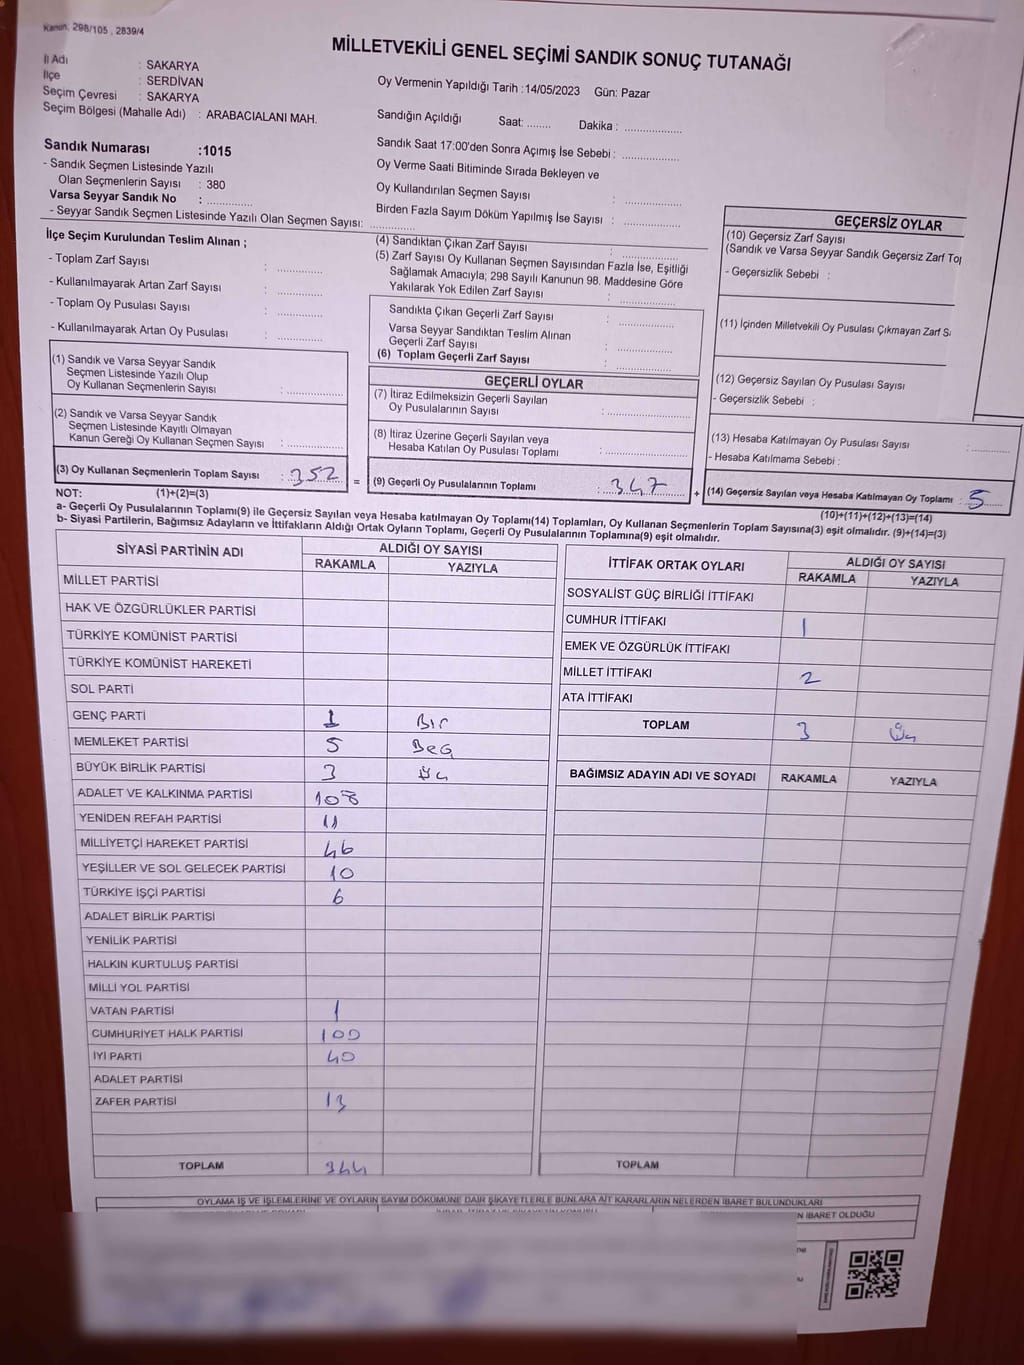 Kanun, 298/105 , 2839/4
MİLLETVEKİLİ GENEL SEÇİMİ SANDIK SONUÇ TUTANAĞI
İl Adı : SAKARYA
İlçe : SERDİVAN
Seçim Çevresi : SAKARYA
Seçim Bölgesi (Mahalle Adı) : ARABACIALANI MAH.
Sandık Numarası :1015
- Sandık Seçmen Listesinde Yazılı
Olan Seçmenlerin Sayısı : 380
Varsa Seyyar Sandık No : ..............
- Seyyar Sandık Seçmen Listesinde Yazılı Olan Seçmen Sayısı: ..............
Oy Vermenin Yapıldığı Tarih :14/05/2023 Gün: Pazar
Sandığın Açıldığı Saat: ........ Dakika : ..................
Sandık Saat 17:00'den Sonra Açımış İse Sebebi : ..................
Oy Verme Saati Bitiminde Sırada Bekleyen ve
Oy Kullandırılan Seçmen Sayısı : ..................
Birden Fazla Sayım Döküm Yapılmış İse Sayısı : ..................
İlçe Seçim Kurulundan Teslim Alınan ;
- Toplam Zarf Sayısı : ..............
- Kullanılmayarak Artan Zarf Sayısı : ..............
- Toplam Oy Pusulası Sayısı : ..............
- Kullanılmayarak Artan Oy Pusulası : ..............
(1) Sandık ve Varsa Seyyar Sandık
Seçmen Listesinde Yazılı Olup
Oy Kullanan Seçmenlerin Sayısı : ..................
(2) Sandık ve Varsa Seyyar Sandık
Seçmen Listesinde Kayıtlı Olmayan
Kanun Gereği Oy Kullanan Seçmen Sayısı : ..................
(3) Oy Kullanan Seçmenlerin Toplam Sayısı : 352 =
(4) Sandıktan Çıkan Zarf Sayısı : ..................
(5) Zarf Sayısı Oy Kullanan Seçmen Sayısından Fazla İse, Eşitliği
Sağlamak Amacıyla; 298 Sayılı Kanunun 98. Maddesine Göre
Yakılarak Yok Edilen Zarf Sayısı : ..................
Sandıkta Çıkan Geçerli Zarf Sayısı : ..................
Varsa Seyyar Sandıktan Teslim Alınan
Geçerli Zarf Sayısı : ..................
(6) Toplam Geçerli Zarf Sayısı : ..................
GEÇERLİ OYLAR
(7) İtiraz Edilmeksizin Geçerli Sayılan
Oy Pusulalarının Sayısı : ..................
(8) İtiraz Üzerine Geçerli Sayılan veya
Hesaba Katılan Oy Pusulası Toplamı : ..................
(9) Geçerli Oy Pusulalarının Toplamı : 347 +
GEÇERSİZ OYLAR
(10) Geçersiz Zarf Sayısı
(Sandık ve Varsa Seyyar Sandık Geçersiz Zarf Top
- Geçersizlik Sebebi :
(11) İçinden Milletvekili Oy Pusulası Çıkmayan Zarf S
(12) Geçersiz Sayılan Oy Pusulası Sayısı
- Geçersizlik Sebebi :
(13) Hesaba Katılmayan Oy Pusulası Sayısı : ..............
- Hesaba Katılmama Sebebi :
(14) Geçersiz Sayılan veya Hesaba Katılmayan Oy Toplamı : 5
NOT: (1)+(2)=(3)
(10)+(11)+(12)+(13)=(14)
a- Geçerli Oy Pusulalarının Toplamı(9) ile Geçersiz Sayılan veya Hesaba katılmayan Oy Toplamı(14) Toplamları, Oy Kullanan Seçmenlerin Toplam Sayısına(3) eşit olmalıdır. (9)+(14)=(3)
b- Siyasi Partilerin, Bağımsız Adayların ve İttifakların Aldığı Ortak Oyların Toplamı, Geçerli Oy Pusulalarının Toplamına(9) eşit olmalıdır.
SİYASİ PARTİNİN ADI ALDIĞI OY SAYISI
RAKAMLA YAZIYLA
MİLLET PARTİSİ
HAK VE ÖZGÜRLÜKLER PARTİSİ
TÜRKİYE KOMÜNİST PARTİSİ
TÜRKİYE KOMÜNİST HAREKETİ
SOL PARTİ
GENÇ PARTİ 1 Bir
MEMLEKET PARTİSİ 5 Beş
BÜYÜK BİRLİK PARTİSİ 3 Üç
ADALET VE KALKINMA PARTİSİ 108
YENİDEN REFAH PARTİSİ 11
MİLLİYETÇİ HAREKET PARTİSİ 46
YEŞİLLER VE SOL GELECEK PARTİSİ 10
TÜRKİYE İŞÇİ PARTİSİ 6
ADALET BİRLİK PARTİSİ
YENİLİK PARTİSİ
HALKIN KURTULUŞ PARTİSİ
MİLLİ YOL PARTİSİ
VATAN PARTİSİ 1
CUMHURİYET HALK PARTİSİ 100
İYİ PARTİ 40
ADALET PARTİSİ
ZAFER PARTİSİ 13
TOPLAM 344
İTTİFAK ORTAK OYLARI ALDIĞI OY SAYISI
RAKAMLA YAZIYLA
SOSYALİST GÜÇ BİRLİĞİ İTTİFAKI
CUMHUR İTTİFAKI 1
EMEK VE ÖZGÜRLÜK İTTİFAKI
MİLLET İTTİFAKI 2
ATA İTTİFAKI
TOPLAM 3 Üç
BAĞIMSIZ ADAYIN ADI VE SOYADI RAKAMLA YAZIYLA
TOPLAM
OYLAMA İŞ VE İŞLEMLERİNE VE OYLARIN SAYIM DÖKÜMÜNE DAİR ŞİKAYETLERLE BUNLARA AİT KARARLARIN NELERDEN İBARET BULUNDUKLARI
N İBARET OLDUĞU